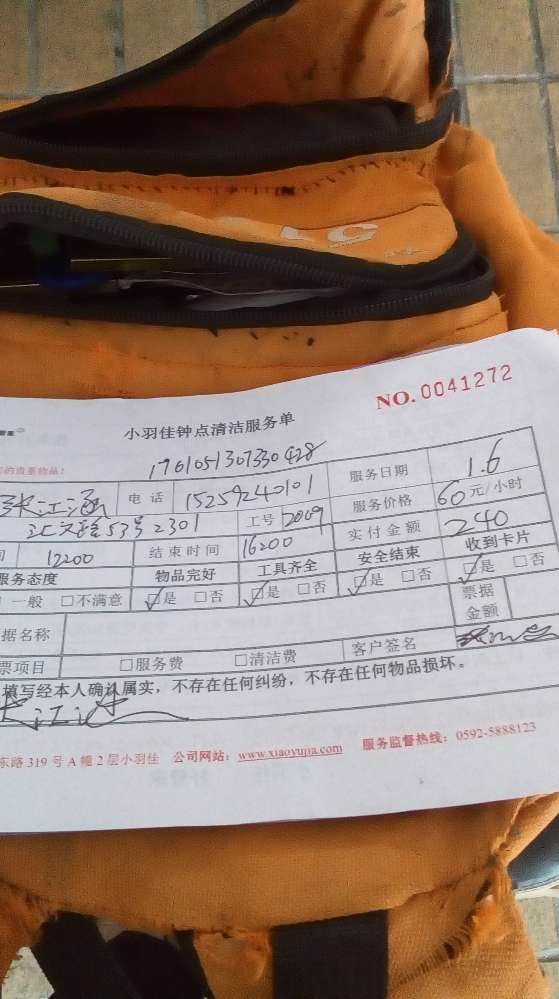 LG
NO. 0041272
小羽佳钟点清洁服务单
的贵重物品!
1761051307330428
张江涵 电话 15259240101 服务日期 1.6
53号2301 工号 2009 服务价格 60元/小时
12:00 结束时间 16:00 实付金额 240
服务态度 物品完好 工具齐全 安全结束 收到卡片
一般 □不满意 ☑是 □否 ☑是 □否 ☑是 □否 ☑是 □否
据名称 票据金额
票项目 □服务费 □清洁费 客户签名
填写经本人确认属实,不存在任何纠纷,不存在任何物品损坏。
东路319号A幢2层小羽佳 公司网站:www.xiaoyujia.com 服务监督热线:0592-5888123